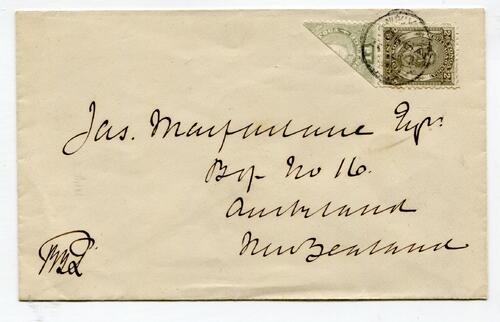 Jas. Macfarlane Esqr.
Box No 16.
Auckland
New Zealand